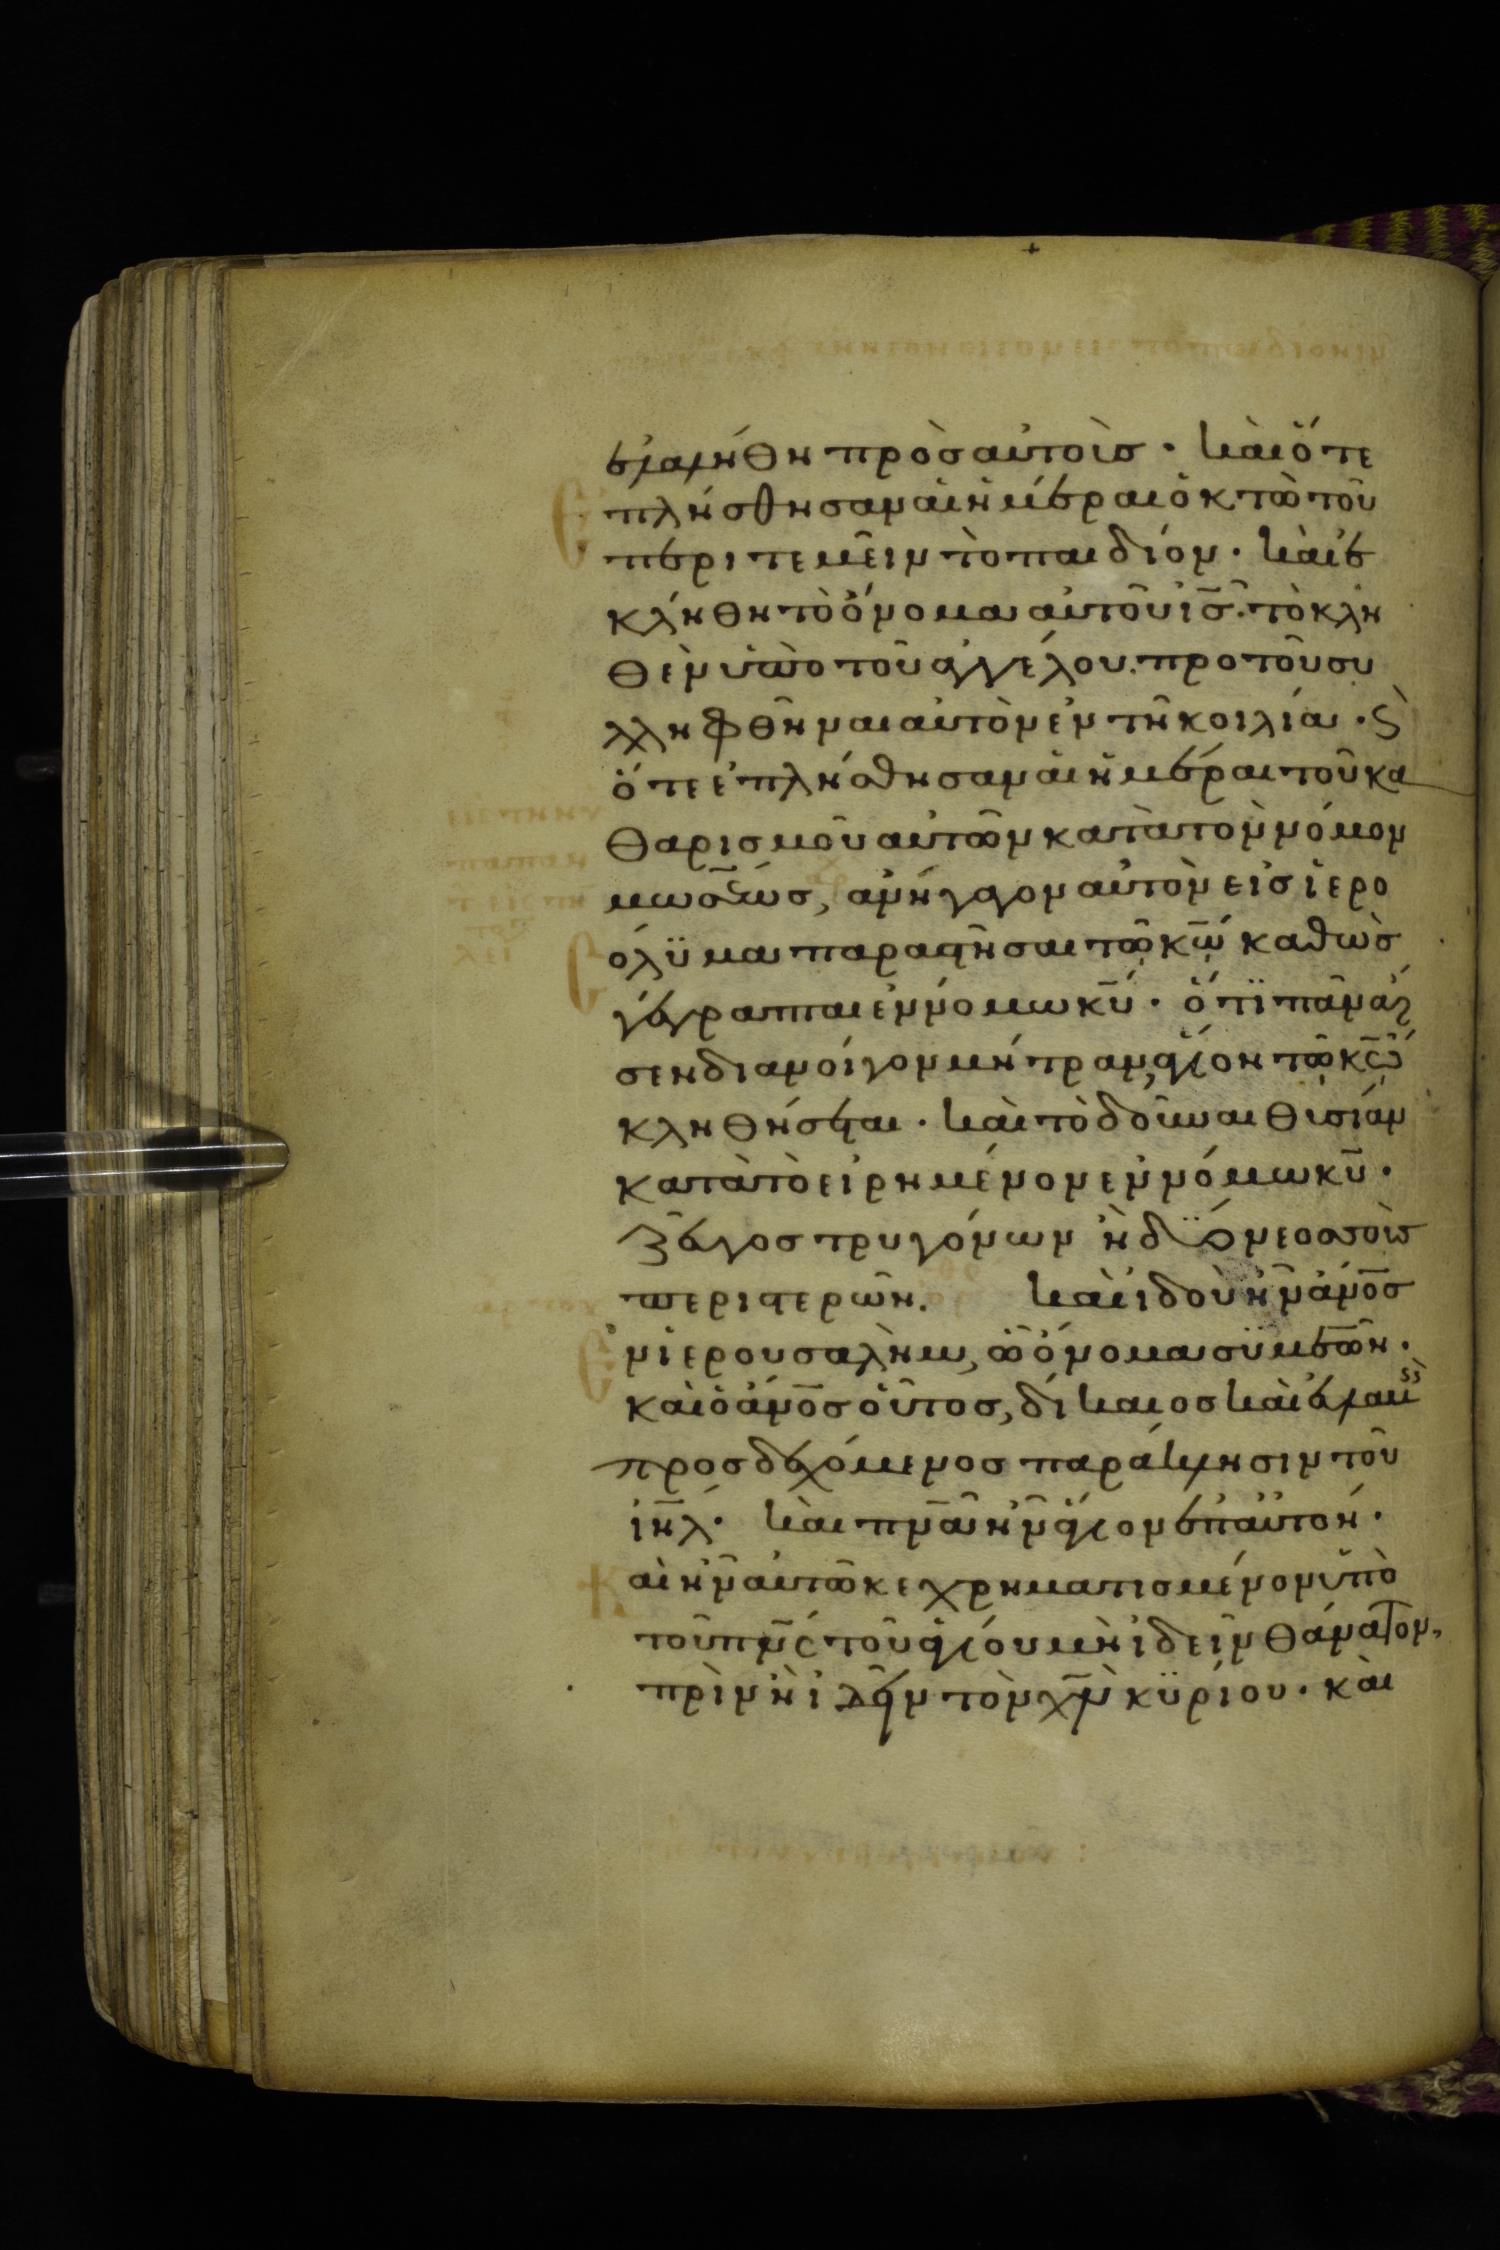 ἐλαλήθη πρὸσ αὐτοὺσ · καὶ ὅτε
Ἐπλήσθησαν αἱ ἡμέραι ὀκτὼ τοῦ
περιτεμεῖν τὸ παιδίον · καὶ ἐ
κλήθη τὸ ὄνομα αὐτοῦ ι̅σ̅ · τὸ κλη
θὲν ὑπὸ τοῦ ἀγγέλου · προ τοῦ συ
λληφθῆναι αὐτὸν ἐν τῆ κοιλία · ϛ̀
ὅτε ἐπλήσθησαν αἱ ἡμέραι τοῦ κα
θαρισμοῦ αὐτῶν κατὰ τὸν νόμον
μωσέωσ, ἀνήγαγον αὐτὸν εἰσ ἱερο
Σολϋμα παραστῆσαι τῶ κ̅ω̅ καθὼσ
γέγραπται ἐν νόμω κ̅υ̅ · ὅτϊ πᾶν ἄρ
σεν διανοίγον μήτραν, ἅγιον τῶ κ̅ω̅
κληθήσεται · καὶ τὸ δοῦναι θυσίαν
κατὰ τὸ εἰρημένον ἐν νόμω κ̅υ̅ ·
ζεῦγοσ τρυγόνων ἢ δύο νεοσσοὺσ
περιστερῶν. καὶ ἰδοὺ ἦν ἄν̅ο̅σ̅
Ἐν ἱερουσαλὴμ, ὧ ὄνομα σϋμεὼν ·
καὶ ὁ ἄν̅ο̅σ̅ οὗτοσ, δίκαιοσ καὶ εὐλαβὴσ
προσδεχόμενοσ παράκλησιν τοῦ
ἰ̅η̅λ̅ · καὶ π̅ν̅α̅ ἦν ἅγιον ἐπ αὐτόν ·
Καὶ ἦν αὐτῶ κεχρηματισμένον ὑπὸ
τοῦ π̅ν̅ς̅ τοῦ ἁγίου μὴ ἰδεῖν θάνατον,
πρὶν ἢ ἴδη τὸν χ̅ν̅ κϋρίου · καὶ